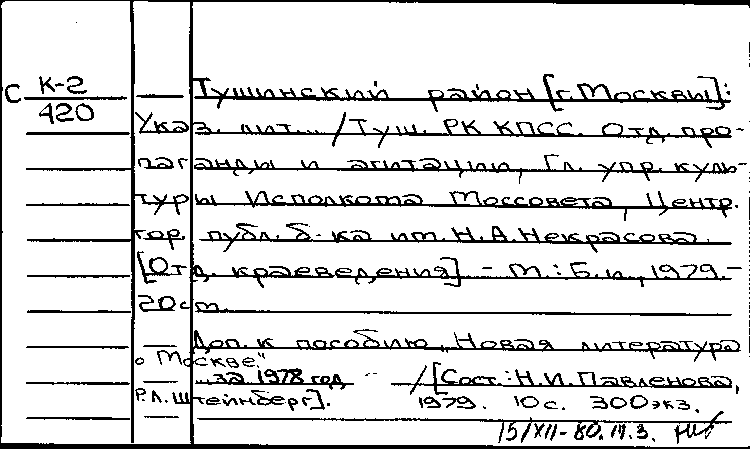 С К-2
420
Тушинский район [г. Москвы]:
Указ. лит... / Туш. РК КПСС. Отд. про-
паганды и агитации, Гл. упр. куль-
туры Исполкома Моссовета, Центр.
гор. публ. б-ка им. Н.А. Некрасова.
[Отд. краеведения]. - М.: Б.и., 1979. -
20 см.
Доп. к пособию „Новая литература
о Москве"
„...за 1978 год / [Сост.: Н.И. Павленова,
Р.Л. Штейнберг]. 1979. 10 с. 300 экз.
15/XII-80.